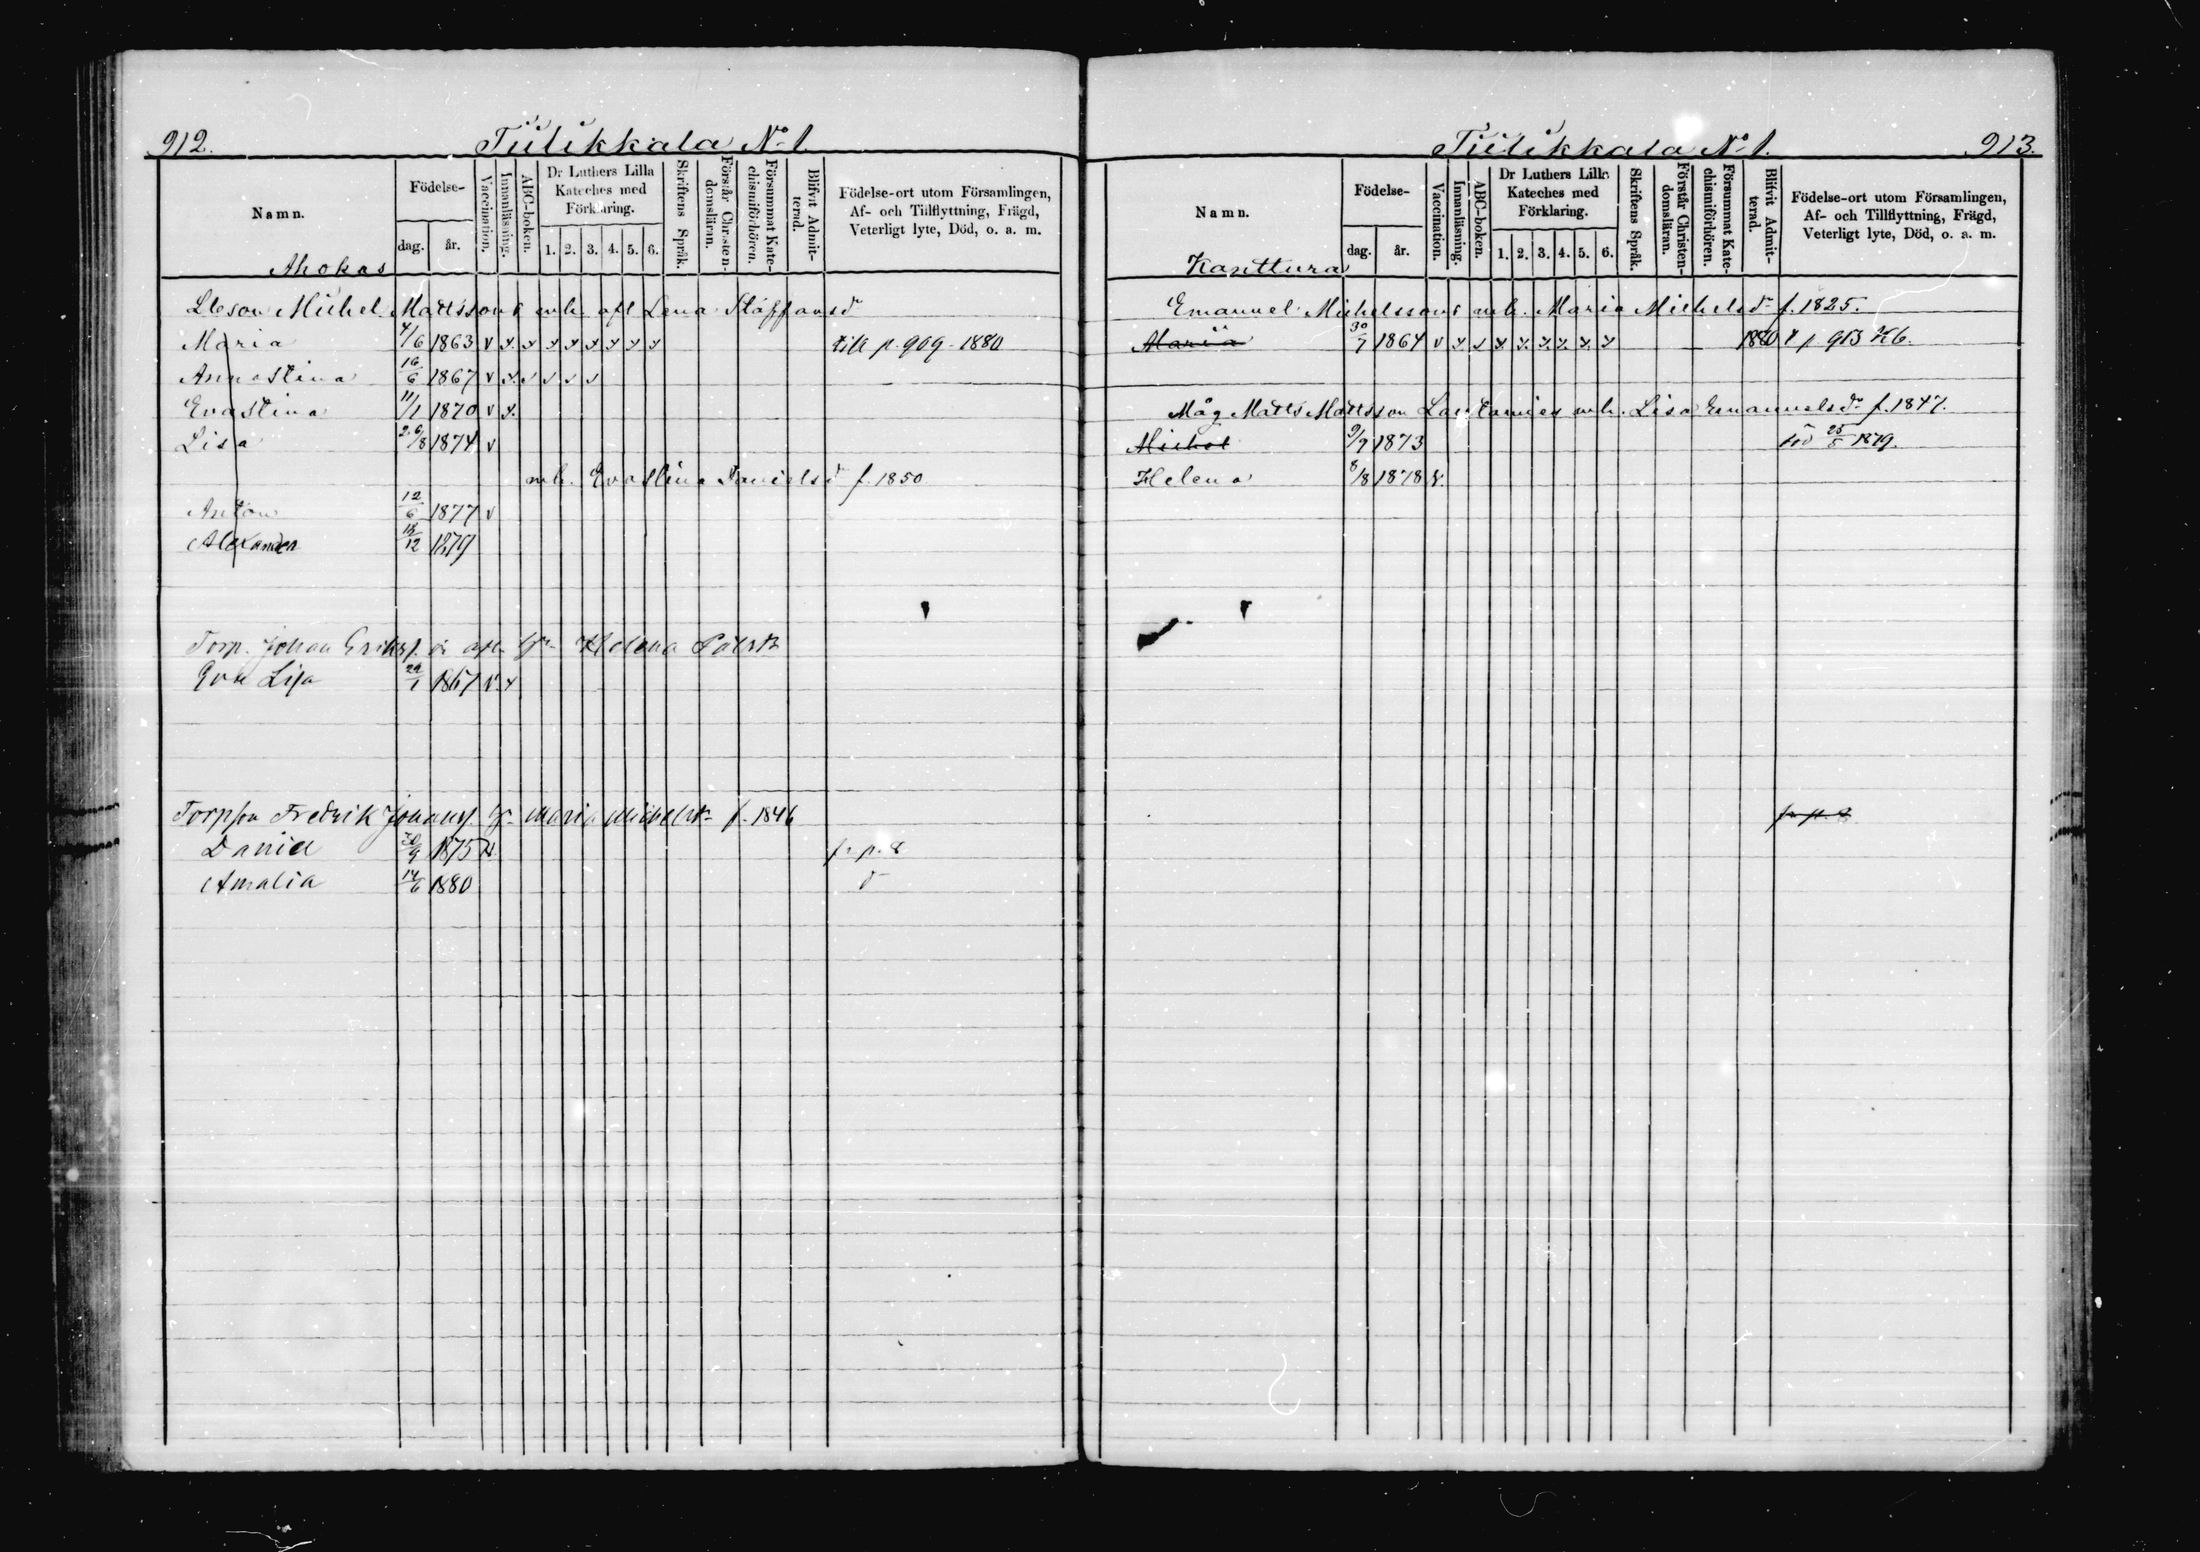 912. Tiilikkala No 1.
Namn. Födelse- dag. år. Vaccination. Innanläsning. ABC-boken. Dr Luthers Lilla Kateches med Förklaring. 1. 2. 3. 4. 5. 6. Skriftens Språk. Förstår Christendomsläran. Försummat Katechismiförhören. Blifvit Admitterad. Födelse-ort utom Församlingen, Af- och Tillflyttning, Frägd, Veterligt lyte, Död, o. a. m.
Ahokas
Michel Mattssons enk. afl Lena Staffansd
Maria 4/6 1863 v x x x x x x x x till p. 909 - 1880
Annastina 16/6 1867 v x v v v v
Evastina 11/1 1870 v x
Lisa 26/8 1874 v
enk. Evastina Danielsd f. 1850
Anton 12/6 1877 v
Alexander 18/12 1879
Torp. Johan Eriks. Helena
Eva Lisa 29/1 1867 v x
Fredrik Johans. Maria Michelsdr f. 1846
Daniel 30/9 1875 v fr p. 8
Amalia 14/6 1880
Tiilikkala No 1. 913.
Namn. Födelse- dag. år. Vaccination. Innanläsning. ABC-boken. Dr Luthers Lilla Kateches med Förklaring. 1. 2. 3. 4. 5. 6. Skriftens Språk. Förstår Christendomsläran. Försummat Katechismiförhören. Blifvit Admitterad. Födelse-ort utom Församlingen, Af- och Tillflyttning, Frägd, Veterligt lyte, Död, o. a. m.
Kanttura
Emanuel Michelssons enk. Maria Michelsdr f. 1825.
Maria 30/7 1864 v x x x x x x x x 1880 t p 913 Kb.
Måg Matts Mattsson Lautamies enk. Lisa Emanuelsdr f. 1847.
Michel 9/9 1873 död 25/5 1879.
Helena 8/8 1878 v.
fr p. 8